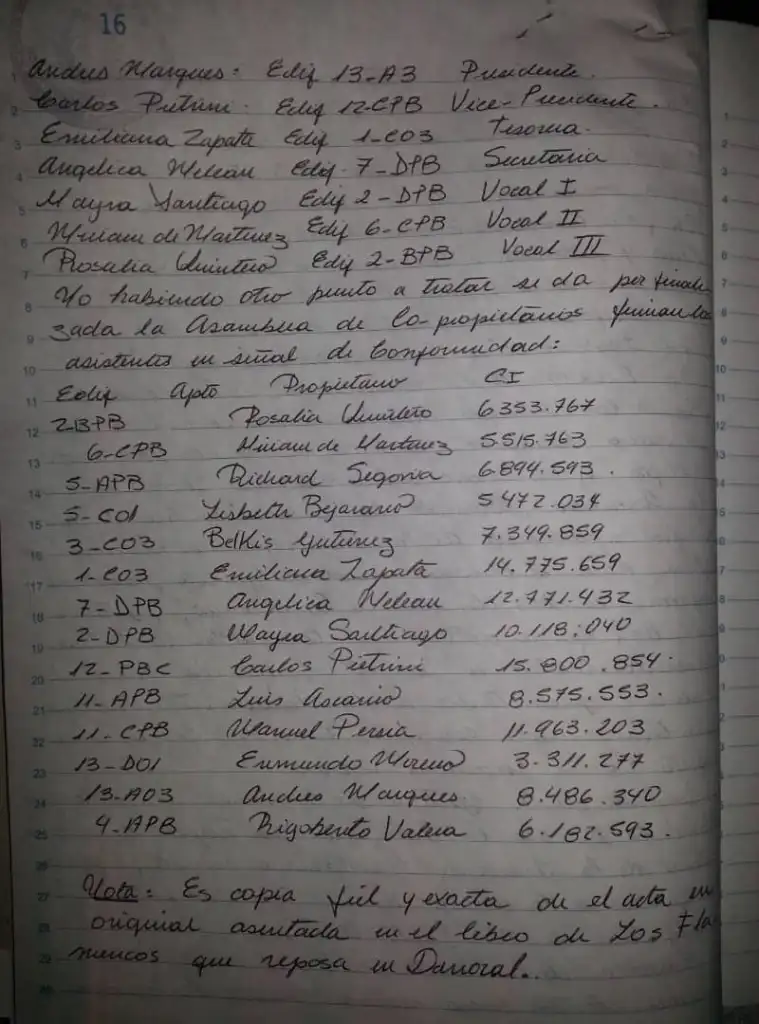 16
Andres Marques: Edif 13-A3 Presidente.
Carlos Pietrini. Edif 12-CPB Vice-Presidente.
Emiliana Zapata Edif 1-C03 Tesorera.
Angelica Melean Edif. 7-DPB Secretaria
Mayra Santiago Edif 2-DPB Vocal I
Miriam de Martinez Edif 6-CPB Vocal II
Rosalia Quintero Edif 2-BPB Vocal III
No habiendo otro punto a tratar se da por finali
zada la Asamblea de Co-propietarios firman los
asistentes en señal de Conformidad:
Edif Apto Propietario CI
2-BPB Rosalia Quintero 6353.767
6-CPB Miriam de Martinez 5.515.763
5-APB Richard Segovia 6.894.593.
5-C01 Lisbeth Bejarano 5.472.034
3-C03 Belkis Gutierrez 7.349.859
1-C03 Emiliana Zapata 14.775.659
7-DPB Angelica Melean 12.771.432
2-DPB Mayra Santiago 10.118.040
12-PBC Carlos Pietrini 15.800.854.
11-APB Luis Ascanio 8.575.553.
11-CPB Manuel Persia 11.963.203
13-D01 Enmundo Moreno 3.311.277
13-A03 Andres Marques. 8.486.340
4-APB Rigoberto Valera 6.182.593.
Nota: Es copia fiel y exacta de el acta en
original asentada en el libro de Los Fla
mencos que reposa en Danoral..